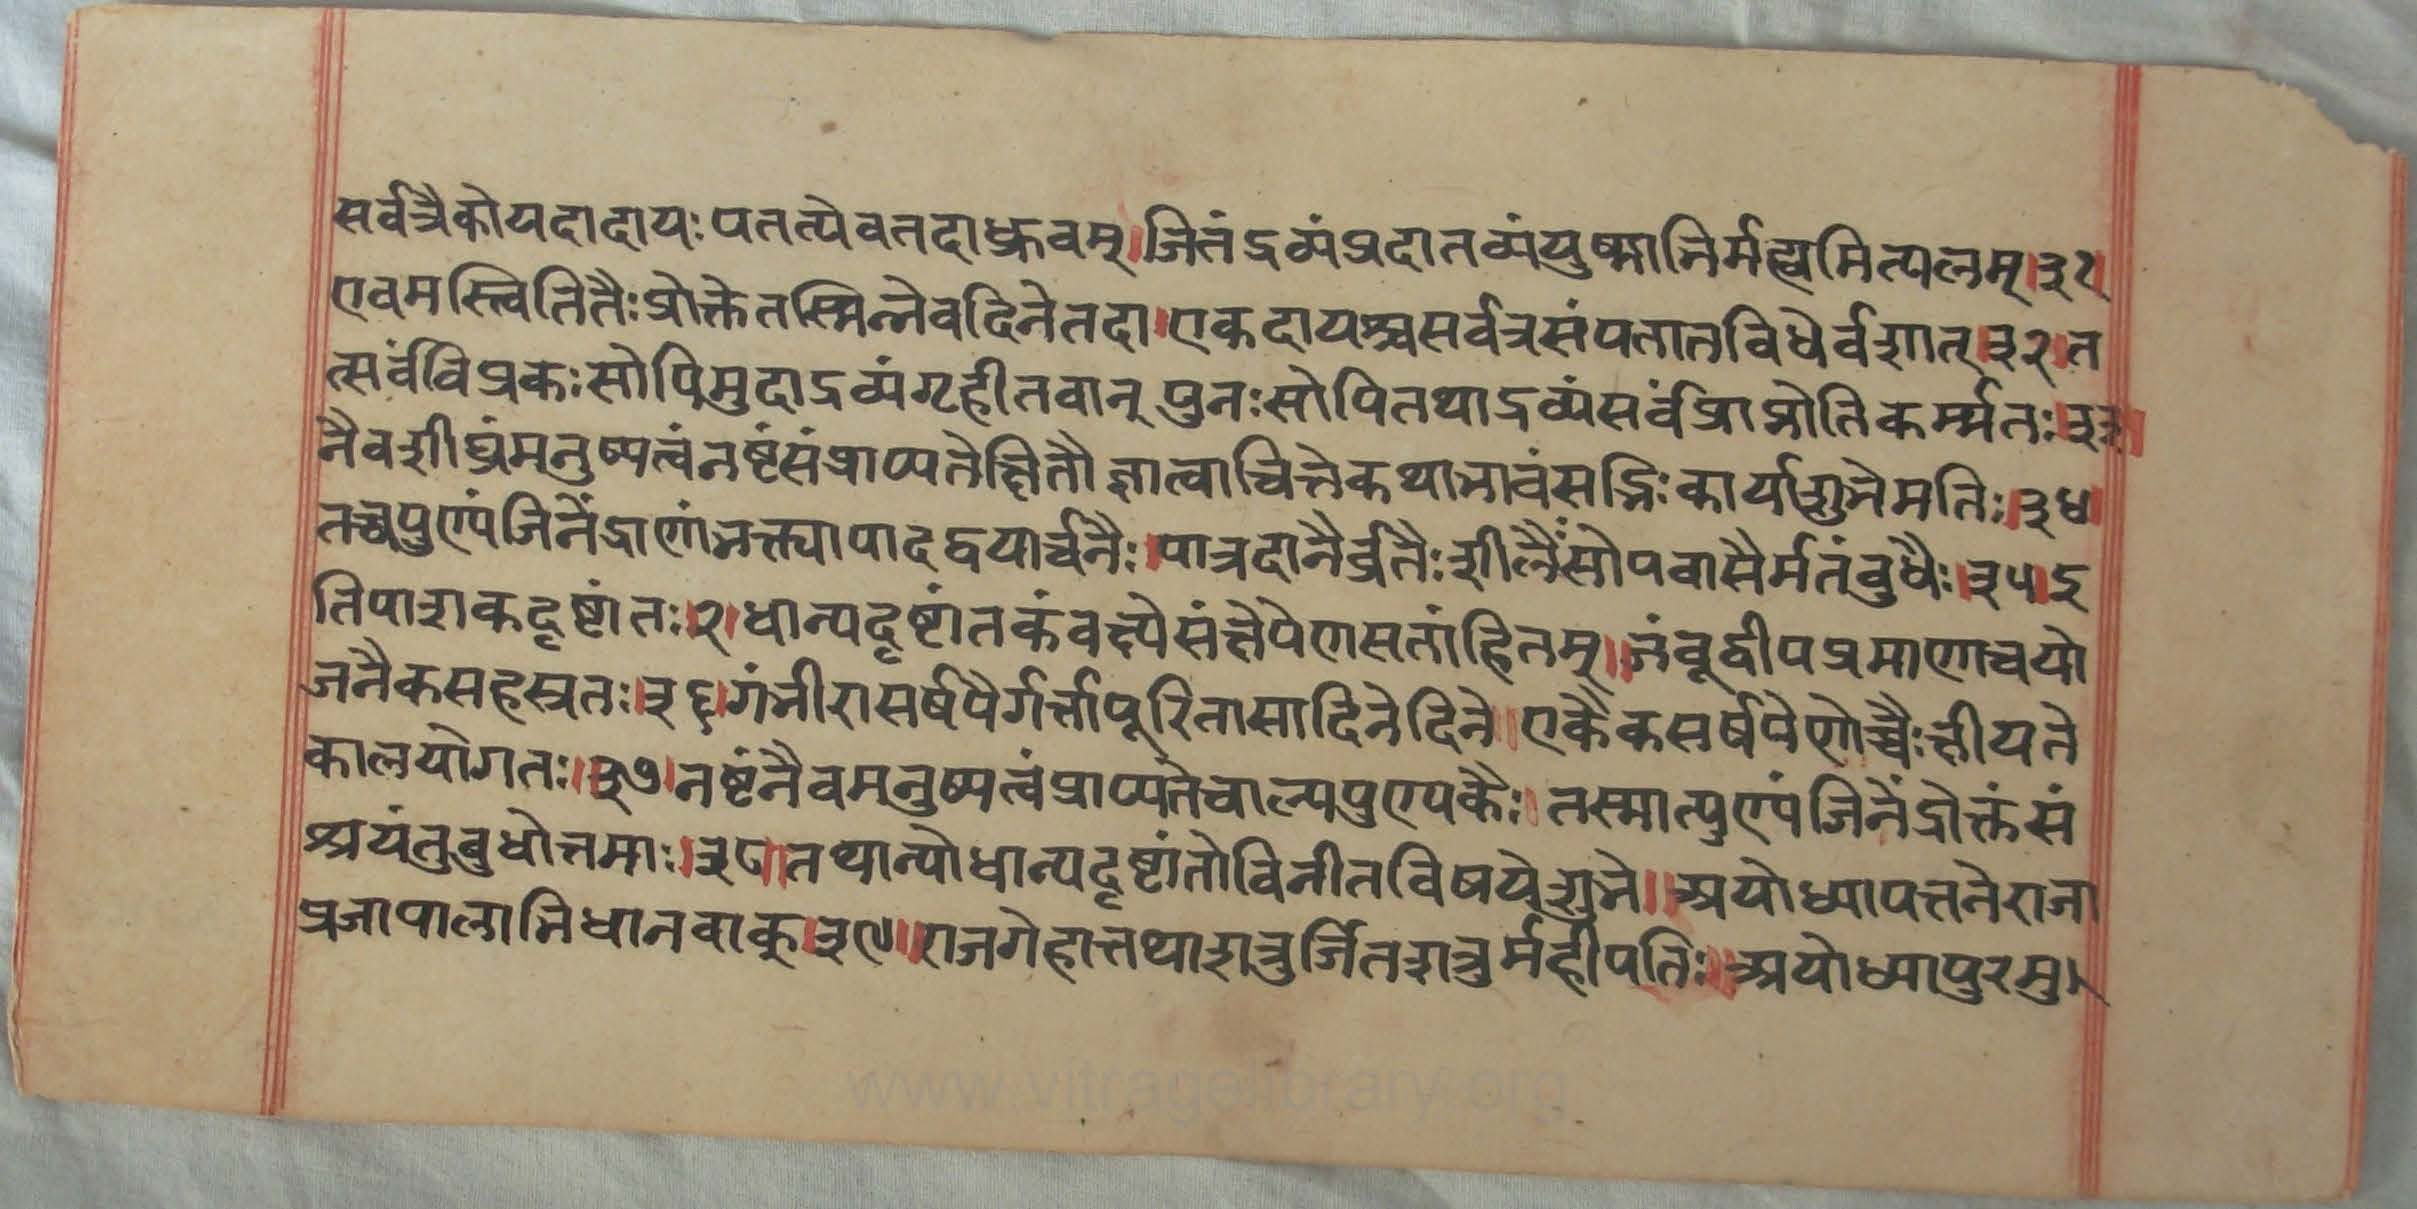 सर्वत्रैकोयदादायःपतत्येवतदाध्रुवम्।जितंद्रव्यंप्रदातव्यंयुष्माभिर्मह्यमित्यलम्।३१
एवमस्त्वितितैःप्रोक्तेतस्मिन्नेवदिनेतदा।एकदायश्चसर्वत्रसंपतातविधेर्वशात्।३२।त
त्सर्वंविप्रकःसोपिमुदाद्रव्यंगृहीतवान् पुनःसोपितथाद्रव्यंसर्वंप्राप्नोतिकर्म्मतः।३३।
नैवशीघ्रंमनुष्यत्वंनष्टंसंप्राप्यतेक्षितौ ज्ञात्वाचित्तेकथाभावंसद्भिःकार्याशुभेमतिः।३४
तच्चपुण्यंजिनेंद्राणांभक्त्यापादद्वयार्च्चनैः।पात्रदानैर्व्रतैःशीलैःसोपवासैर्मतंबुधैः।३५।इ
तिपाशकदृष्टांतः।२।धान्यदृष्टांतकंवक्ष्येसंक्षेपेणसतांहितम्।जंबूद्वीपप्रमाणाचयो
जनैकसहस्रतः।३६।गंभीरासर्षपैर्गर्त्तापूरितासादिनेदिने।एकैकसर्षपेणोच्चैःक्षीयते
कालयोगतः।३७।नष्टंनैवमनुष्यत्वंप्राप्यतेचाल्पपुण्यकैः।तस्मात्पुण्यंजिनेंद्रोक्तंसं
श्रयंतुबुधोत्तमाः।३८।तथान्योधान्यदृष्टांतोविनीतविषयेशुभे।अयोध्यापत्तनेराजा
प्रजापालाभिधानवाक्।३९।राजगेहात्तथाशत्रुर्जितशत्रुर्महीपतिः।अयोध्यापुरमु
www.vitragelibrary.org